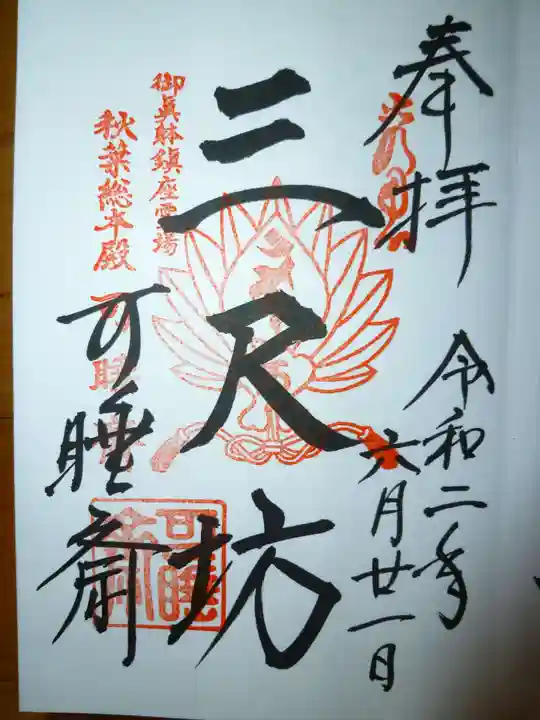 奉拝
令和二年
六月廿一日
三尺坊
御真躰鎮座霊場
秋葉総本殿
可睡斎
可睡斎